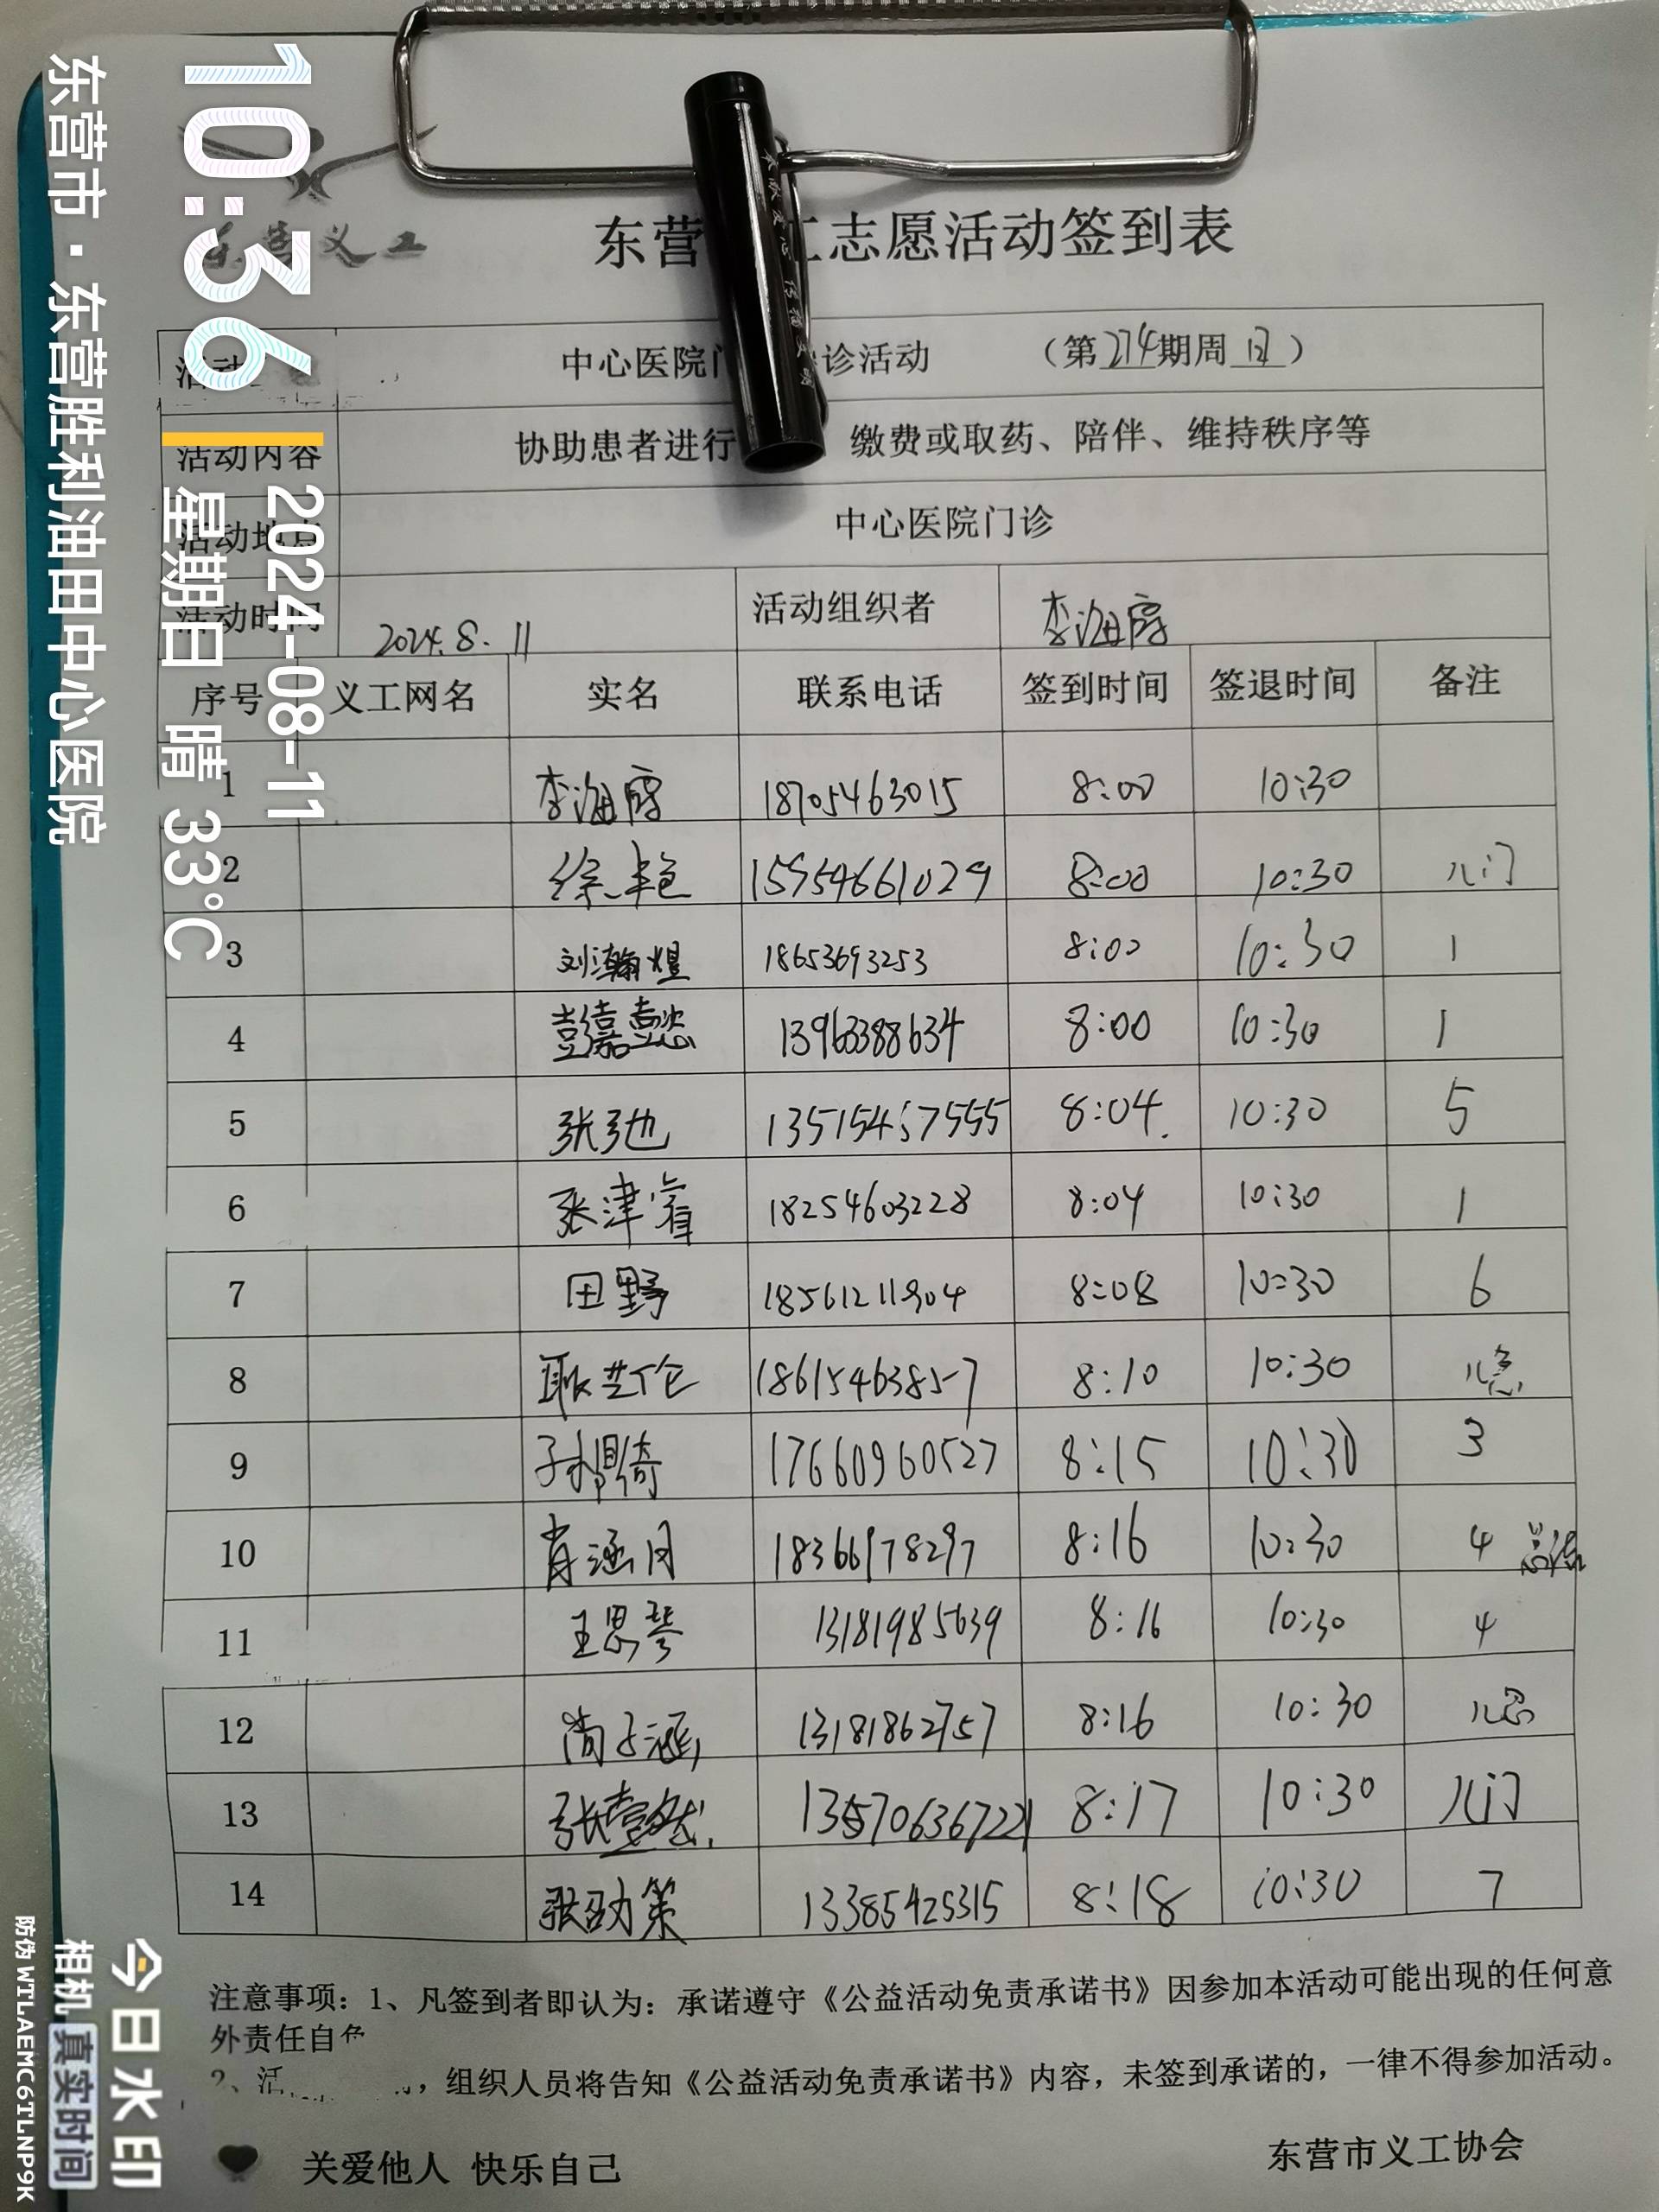 东营义工
东营 工志愿活动签到表
中心医院门 诊活动 （第274期周日）
活动内容 协助患者进行 缴费或取药、陪伴、维持秩序等
活动地点 中心医院门诊
活动时间 2024.8.11 活动组织者 李海霞
序号 义工网名 实名 联系电话 签到时间 签退时间 备注
1 李海霞 18705463015 8:00 10:30
2 徐艳 15954661029 8:00 10:30 儿门
3 刘瀚煜 18653693253 8:00 10:30 1
4 彭嘉懿 13963388634 8:00 10:30 1
5 张弛 13515457555 8:04 10:30 5
6 张津睿 18254603228 8:04 10:30 1
7 田野 18561211904 8:08 10:30 6
8 耿芷仓 18615463857 8:10 10:30 儿急
9 孙愳绮 17660960527 8:15 10:30 3
10 肖涵月 18366978297 8:16 10:30 4
11 王思琴 13181985639 8:16 10:30 4
12 尚子涵 13181862757 8:16 10:30 儿急
13 张 8:17 10:30 儿门
14 张劲策 13385425315 8:18 10:30 7
注意事项：1、凡签到者即认为：承诺遵守《公益活动免责承诺书》因参加本活动可能出现的任何意
外责任自负
2、活 ，组织人员将告知《公益活动免责承诺书》内容，未签到承诺的，一律不得参加活动。
关爱他人 快乐自己
东营市义工协会
10:36
2024-08-11
星期日 晴 33°C
东营市·东营胜利油田中心医院
今日水印
相机 真实时间
防伪 WTLAEMC6TLNP9K